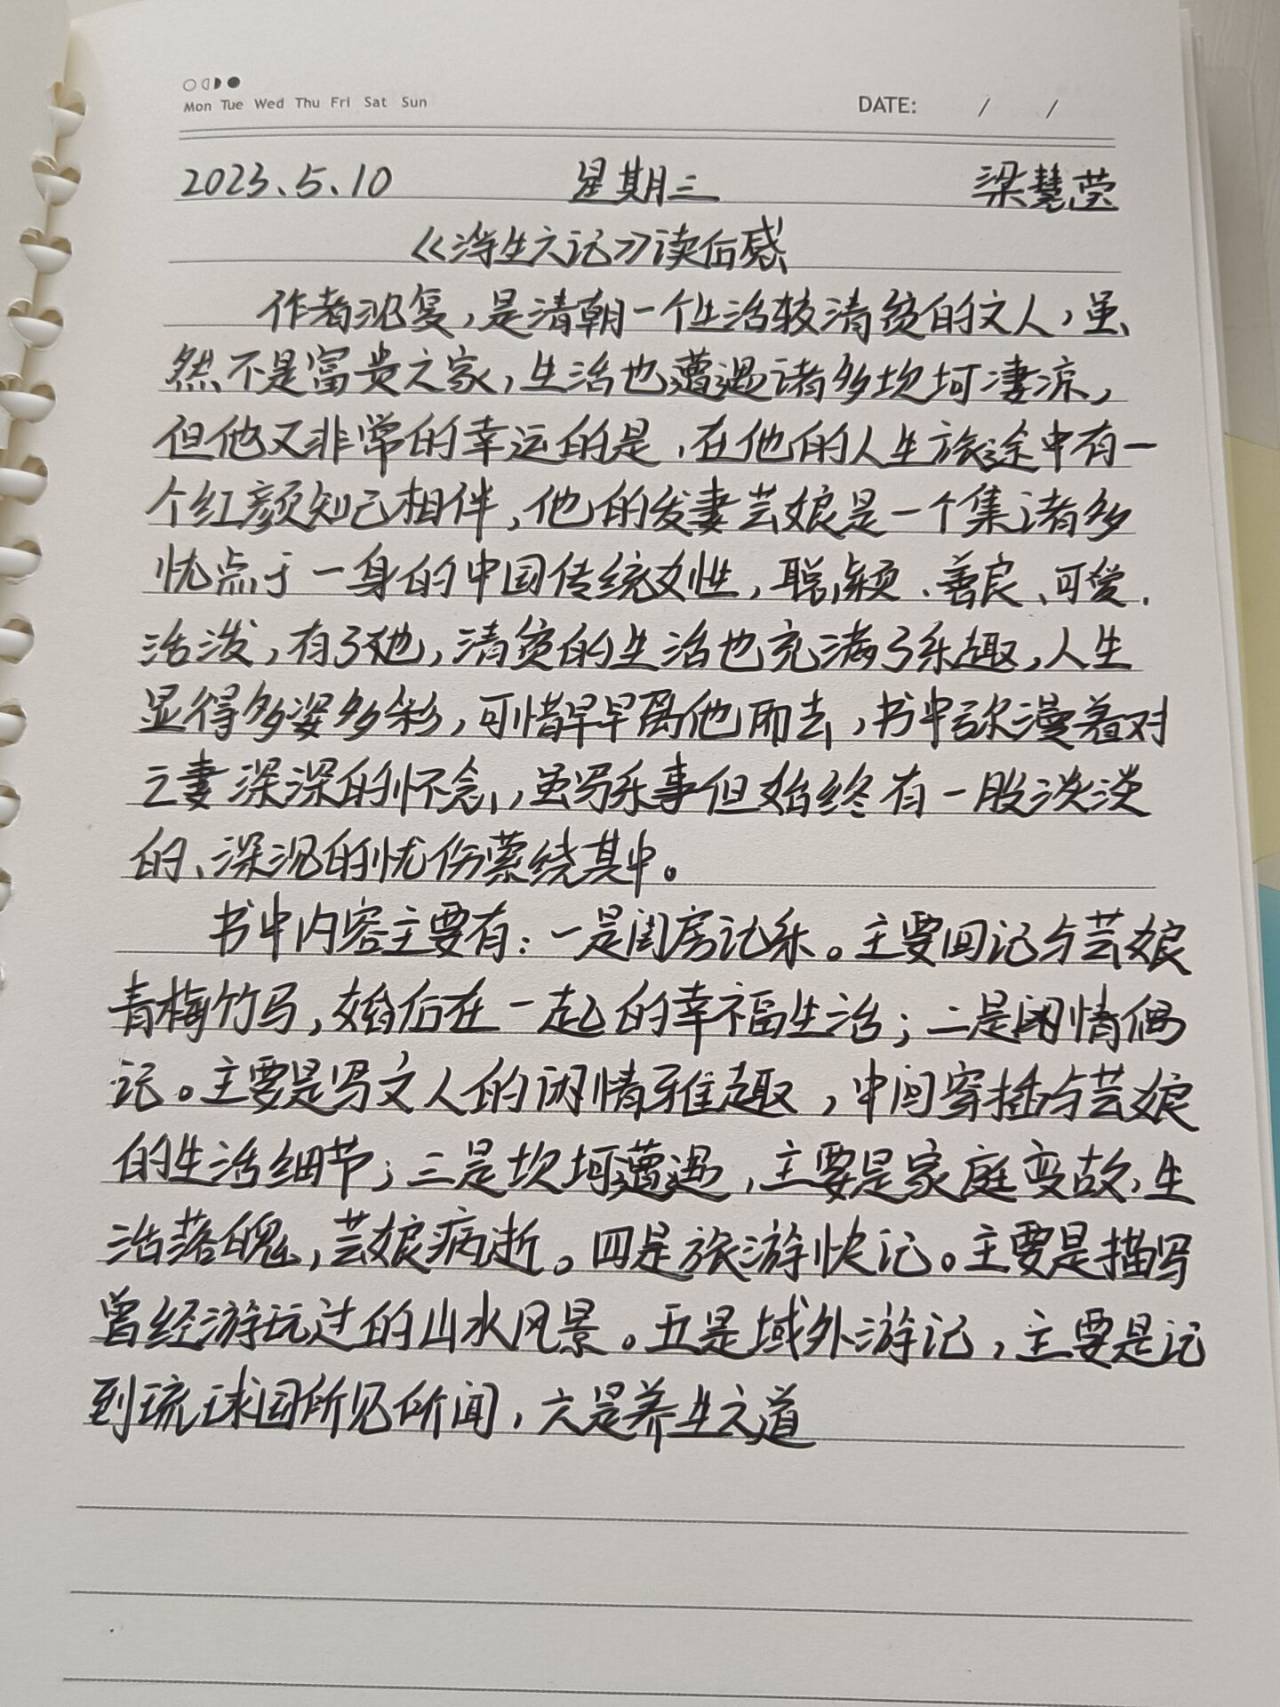 Mon Tue Wed Thu Fri Sat Sun
DATE: / /
2023.5.10 星期三 梁慧莹
《浮生六记》读后感
作者沈复,是清朝一个生活较清贫的文人,虽
然不是富贵之家,生活也遭遇诸多坎坷凄凉,
但他又非常的幸运的是,在他的人生旅途中有一
个红颜知己相伴,他的发妻芸娘是一个集诸多
优点于一身的中国传统女性,聪颖、善良、可爱、
活泼,有了她,清贫的生活也充满了乐趣,人生
显得多姿多彩,可惜早早离他而去,书中弥漫着对
亡妻深深的怀念,虽写乐事但始终有一股淡淡
的、深沉的忧伤萦绕其中。
书中内容主要有:一是闺房记乐。主要回记与芸娘
青梅竹马,婚后在一起的幸福生活;二是闲情偶
记。主要是写文人的闲情雅趣,中间穿插与芸娘
的生活细节;三是坎坷遭遇,主要是家庭变故,生
活落魄,芸娘病逝。四是旅游快记。主要是描写
曾经游玩过的山水风景。五是域外游记,主要是记
到琉球国所见所闻,六是养生之道